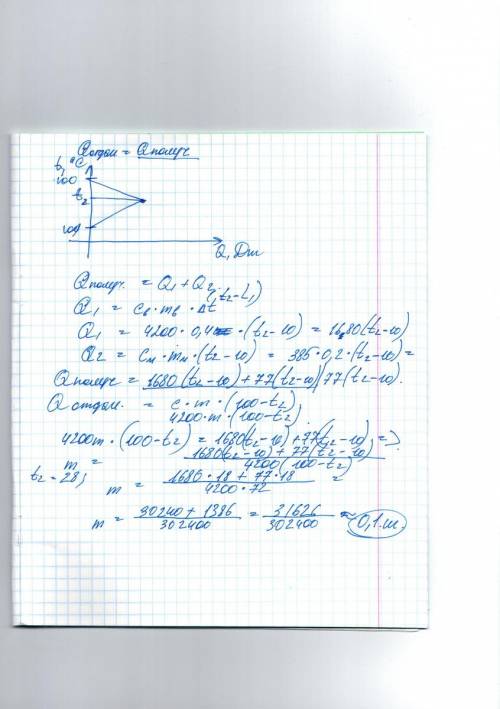 Qотдан = Qполуч
t, °C
100
t₂
10
Q, Дж
Qполуч. = Q₁ + Q₂
(t₂-t₁)
Q₁ = Cв · mв · Δt
Q₁ = 4200 · 0,4 · (t₂-10) = 1680(t₂-10)
Q₂ = Cм · mм · (t₂-10) = 385 · 0,2 · (t₂-10) =
Qполуч = 1680(t₂-10) + 77(t₂-10) | 77(t₂-10).
Qотдан. = c · m · (100-t₂)
4200 · m · (100-t₂)
4200m · (100-t₂) = 1680(t₂-10) + 77(t₂-10) =>
m = 1680(t₂-10) + 77(t₂-10) / 4200(100-t₂)
t₂ = 28;
m = 1680 · 18 + 77 · 18 / 4200 · 72 =
m = 30240 + 1386 / 302400 = 31626 / 302400 ≈ 0,1